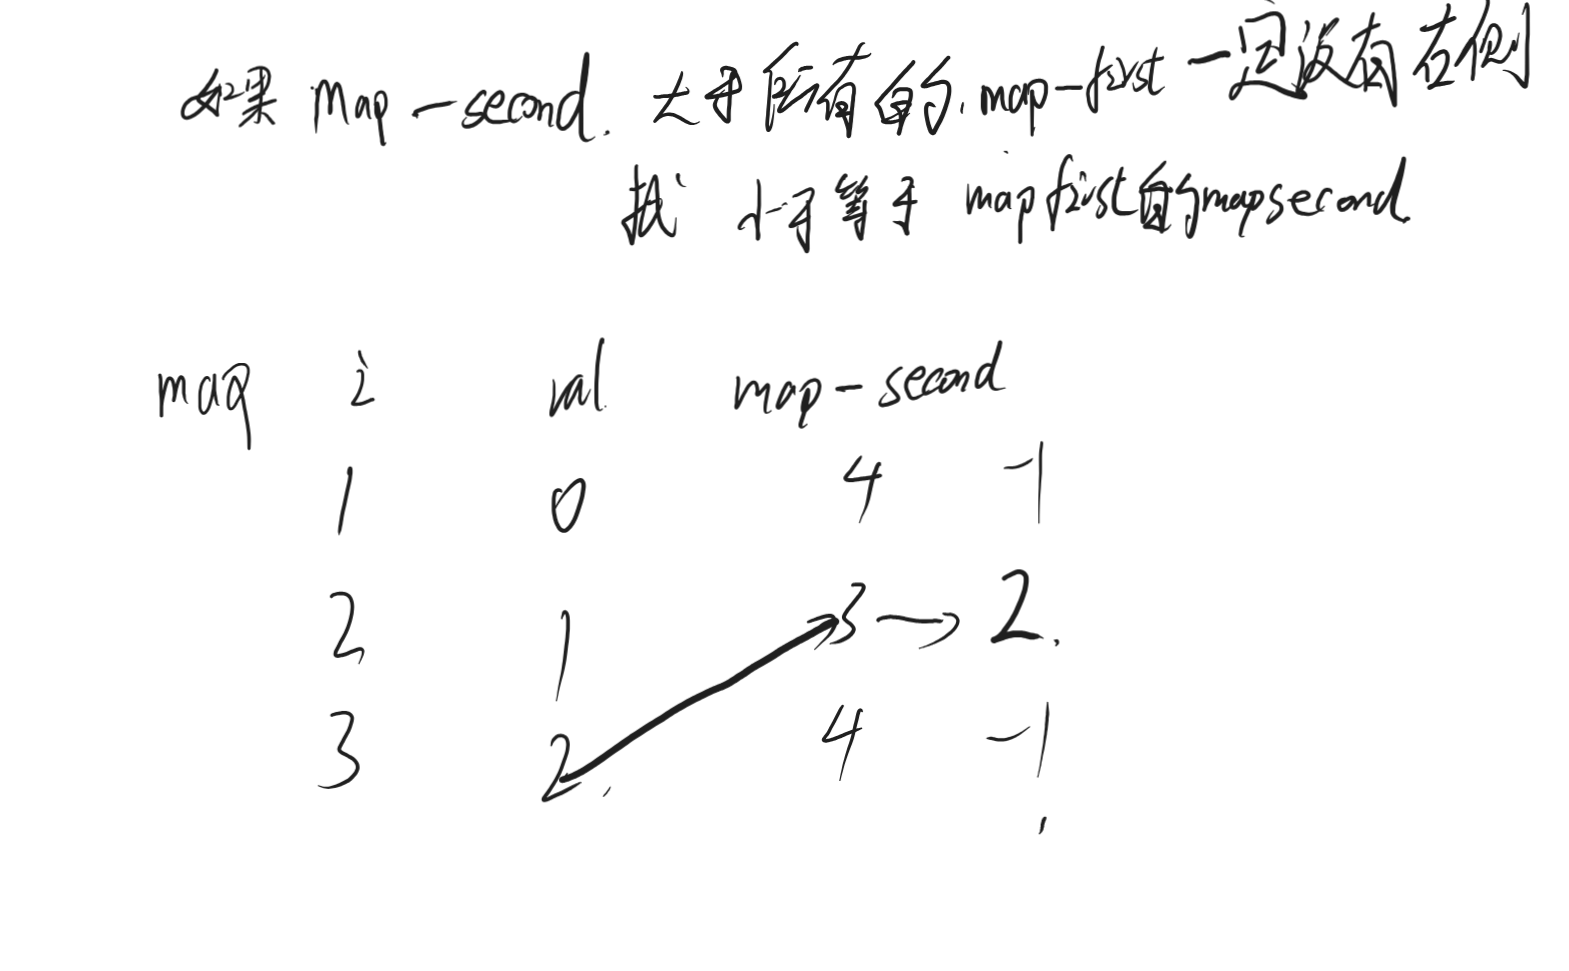 如果 map-second. 大于所有的 map-first 一定没有右侧
找 小于等于 map first的mapsecond
map i val map-second
1 0 4 -1
2 1 3 → 2.
3 2. 4 -1